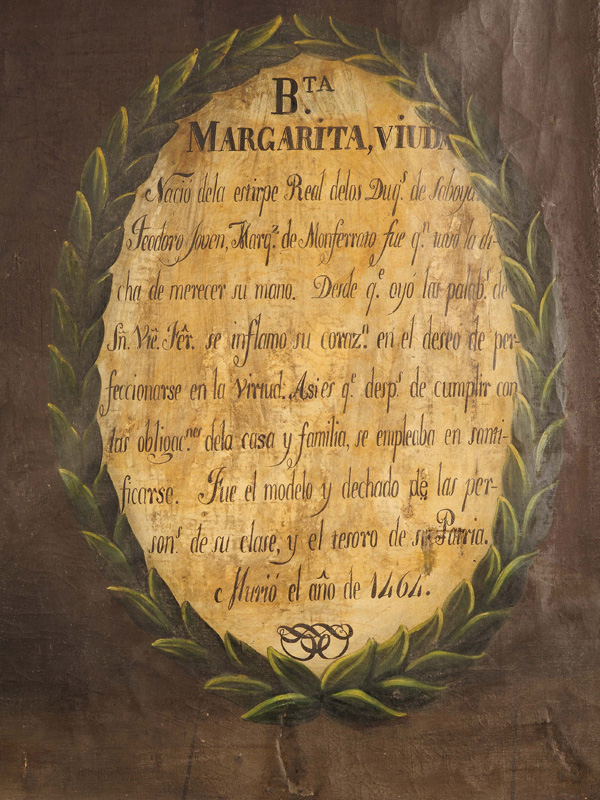 B.TA
MARGARITA, VIUDA
Nació dela estirpe Real delos Duq.s de Saboya.
Teodoro Joven, Marq.z de Monferrato fue q.n tuvo la di-
cha de merecer su mano. Desde q.e oyó las palab.s de
Sn. Vie. Fer. se inflamo su coraz.n en el deseo de per-
feccionarse en la Virtud. Asi es q.e desp.s de cumplir con
las obligac.nes dela casa y familia, se empleaba en santi-
ficarse. Fue el modelo y dechado de las per-
son.s de su clase, y el tesoro de su Patria.
Murió el año de 1464.